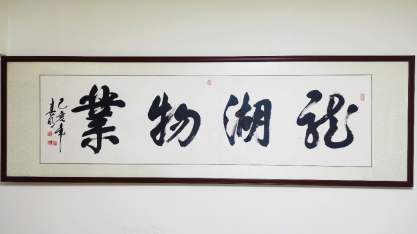 龍湖物業
己亥年